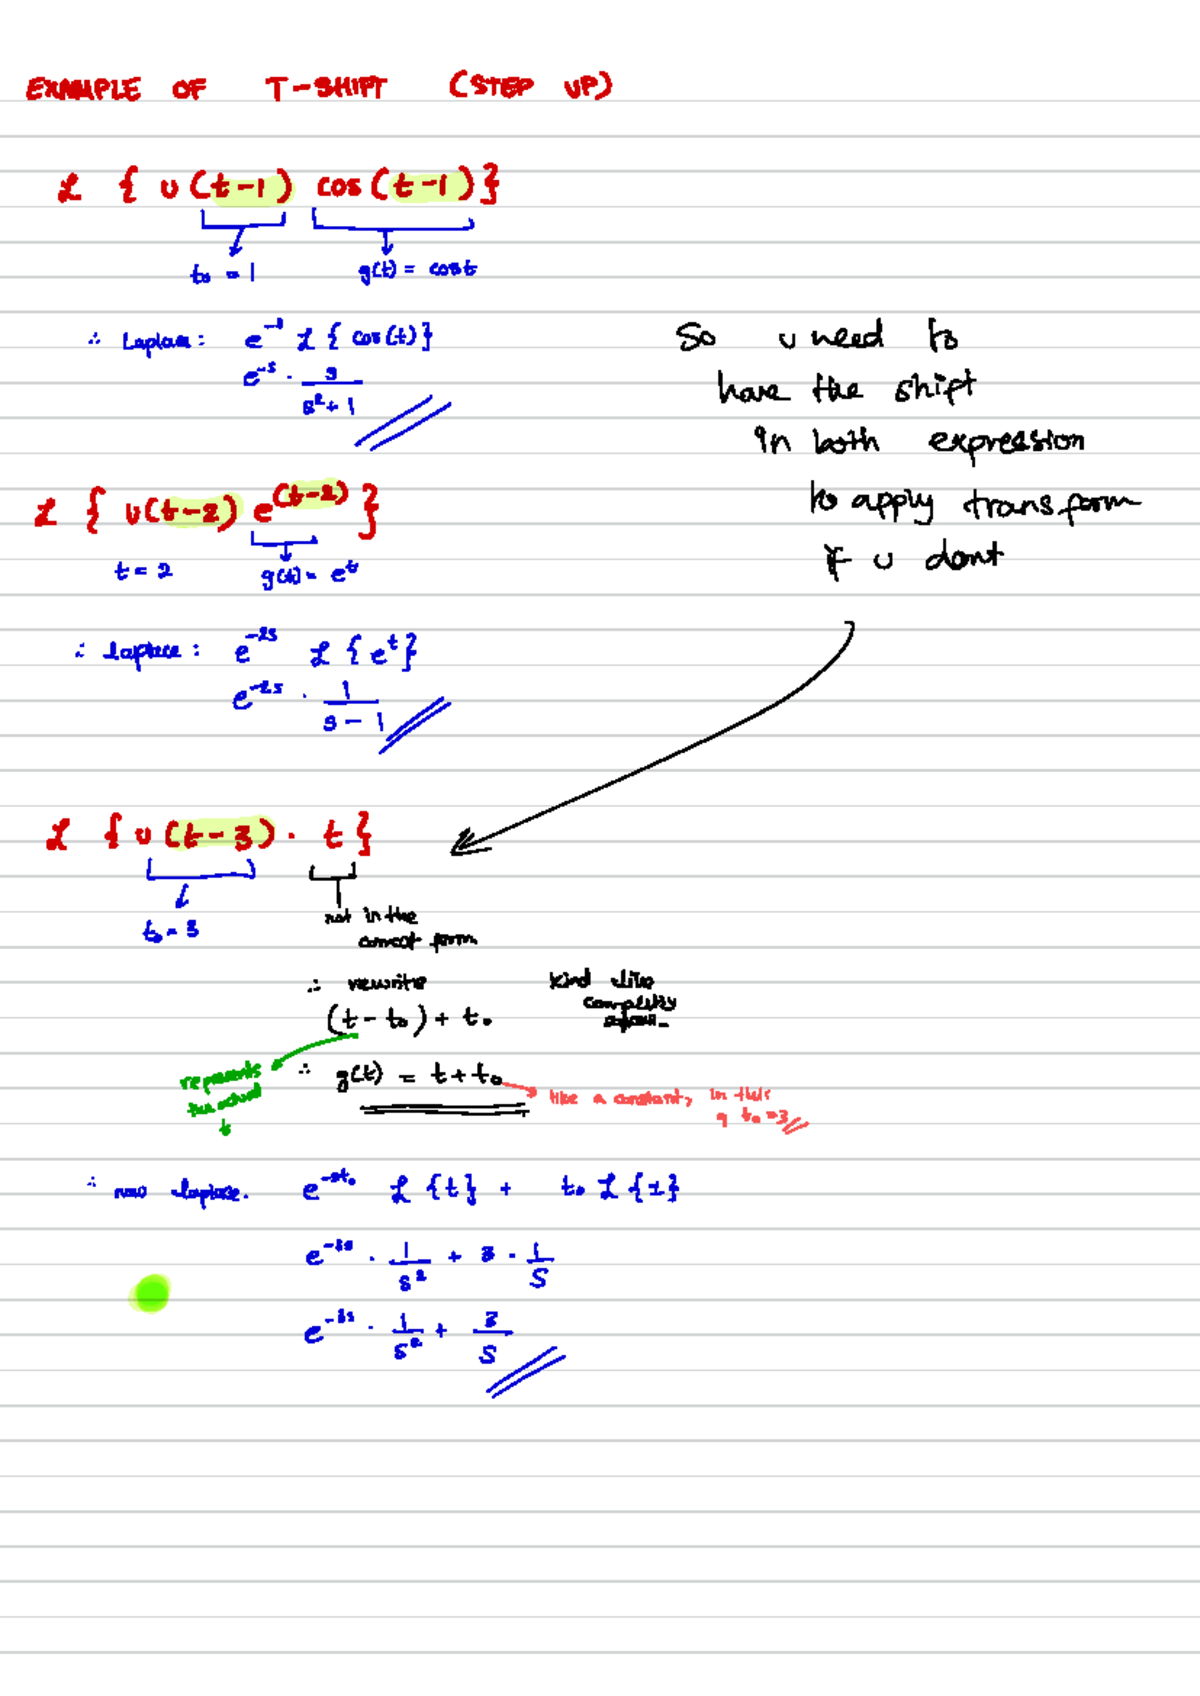 EXAMPLE OF T-SHIFT (STEP UP)
ℒ { u(t-1) cos(t-1)}
t₀ = 1
g(t) = cost
∴ Laplace: e⁻ˢ ℒ { cos(t)}
e⁻ˢ · s/(s²+1)
So u need to
have the shift
in both expression
to apply transform
if u dont
ℒ { u(t-2) e^(t-2) }
t = 2
g(t) = eᵗ
∴ laplace: e⁻²ˢ ℒ {eᵗ}
e⁻²ˢ · 1/(s-1)
ℒ {u(t-3) · t}
t₀ = 3
not in the
correct form
∴ rewrite
(t-t₀) + t₀
kind like
∴ g(t) = t + t₀
represents
the actual
t
like a constant, in this
q t₀ = 3
∴ now laplace. e^(-st₀) ℒ {t} + t₀ ℒ {1}
e⁻³ˢ · 1/s² + 3 · 1/s
e⁻³ˢ · 1/s² + 3/s